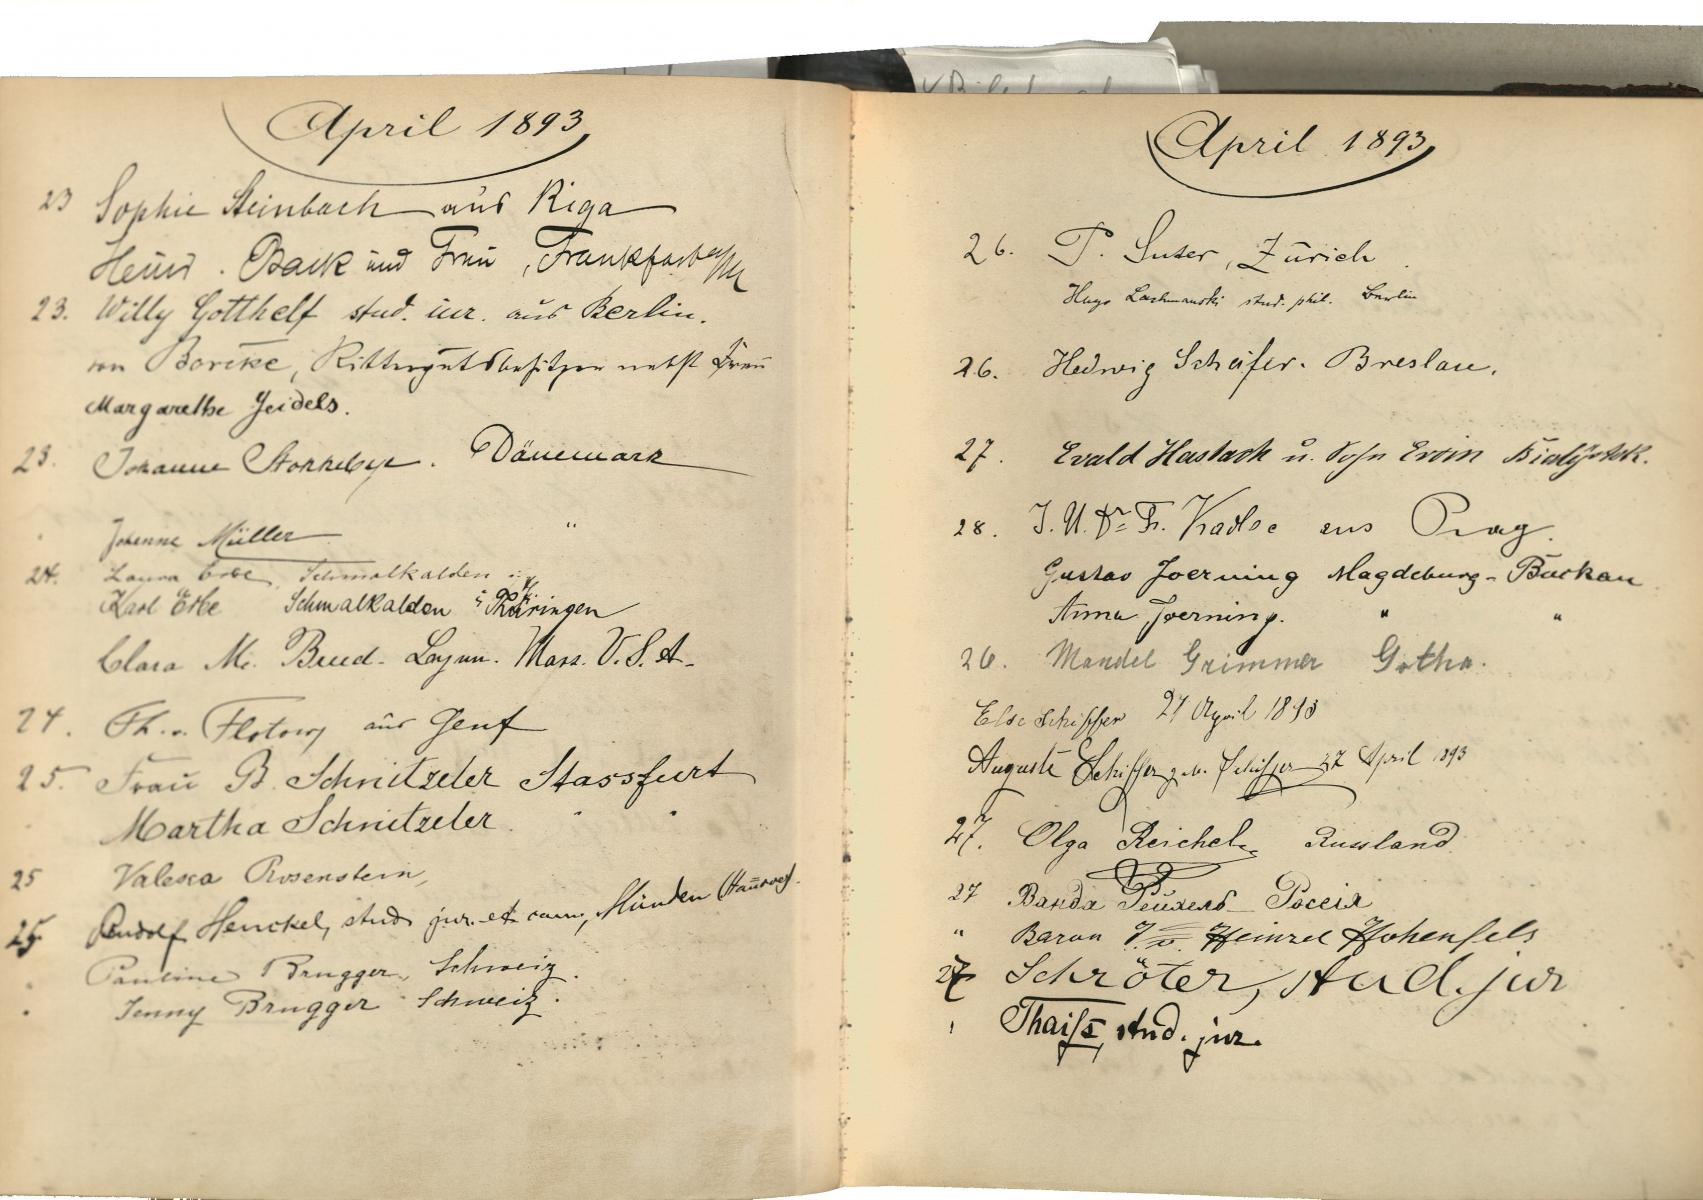 April 1893
23 Sophie Steinbach aus Riga
Heinr. Back und Frau, Frankfurt a/M
23. Willy Gotthelf stud. iur. aus Berlin.
von Borcke, Rittergutsbesitzer nebst Frau
Margarethe Jeidels.
23. Johanne . Dänemark
Johanne Müller "
24. Laura Erbe Schmalkalden
Karl Erbe Schmalkalden i Thüringen
Clara M. Lynn. Mass. U.S.A.
24. Th. v. Flotow aus Genf
25. Frau B. Schnitzeler Stassfurt
Martha Schnitzeler " "
25 Valesca Rosenstein,
25. Rudolf Henckel, stud jur. et cam, Münden (Hannover).
" Pauline Brugger, Schweiz.
" Jenny Brugger Schweiz.
April 1893
26. P. Suter, Zürich
Hugo Lachmanski stud. phil. Berlin
26. Hedwig Schäfer. Breslau.
27. Evald Hasbach u. Sohn Ervin Bialystok.
28. J.U.Dr. Fr. aus Prag.
Gustav Joerning Magdeburg-Buckau
Anna Joerning. " "
26. Mandel Grimmer Gotha.
Else Schiffer 27 April 1893
Auguste Schiffer geb. Schiffer 27 April 1893
27. Olga Reichel Russland
27 Ванда Рейхель Россія
" Baron J. v. Heinzel Hohenfels
27 Schröter, stud. jur
" Thaiss, stud. jur.